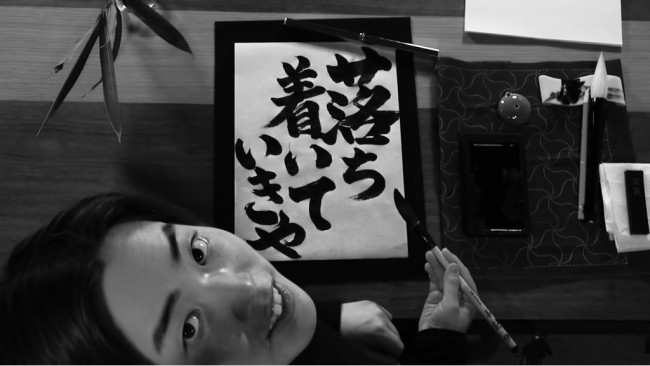 落ち
着いて
いきや